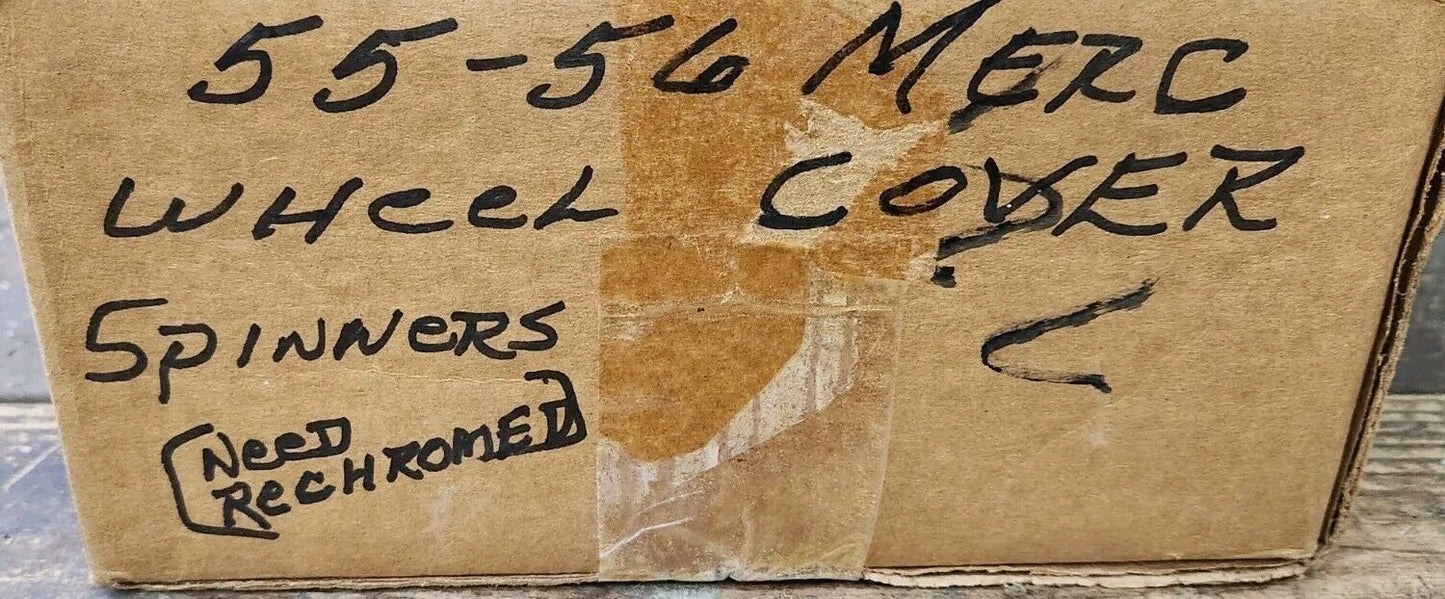 55-56 MERC
WHeeL COVER
SpINNeRS
[NeeD
ReCHROMED]